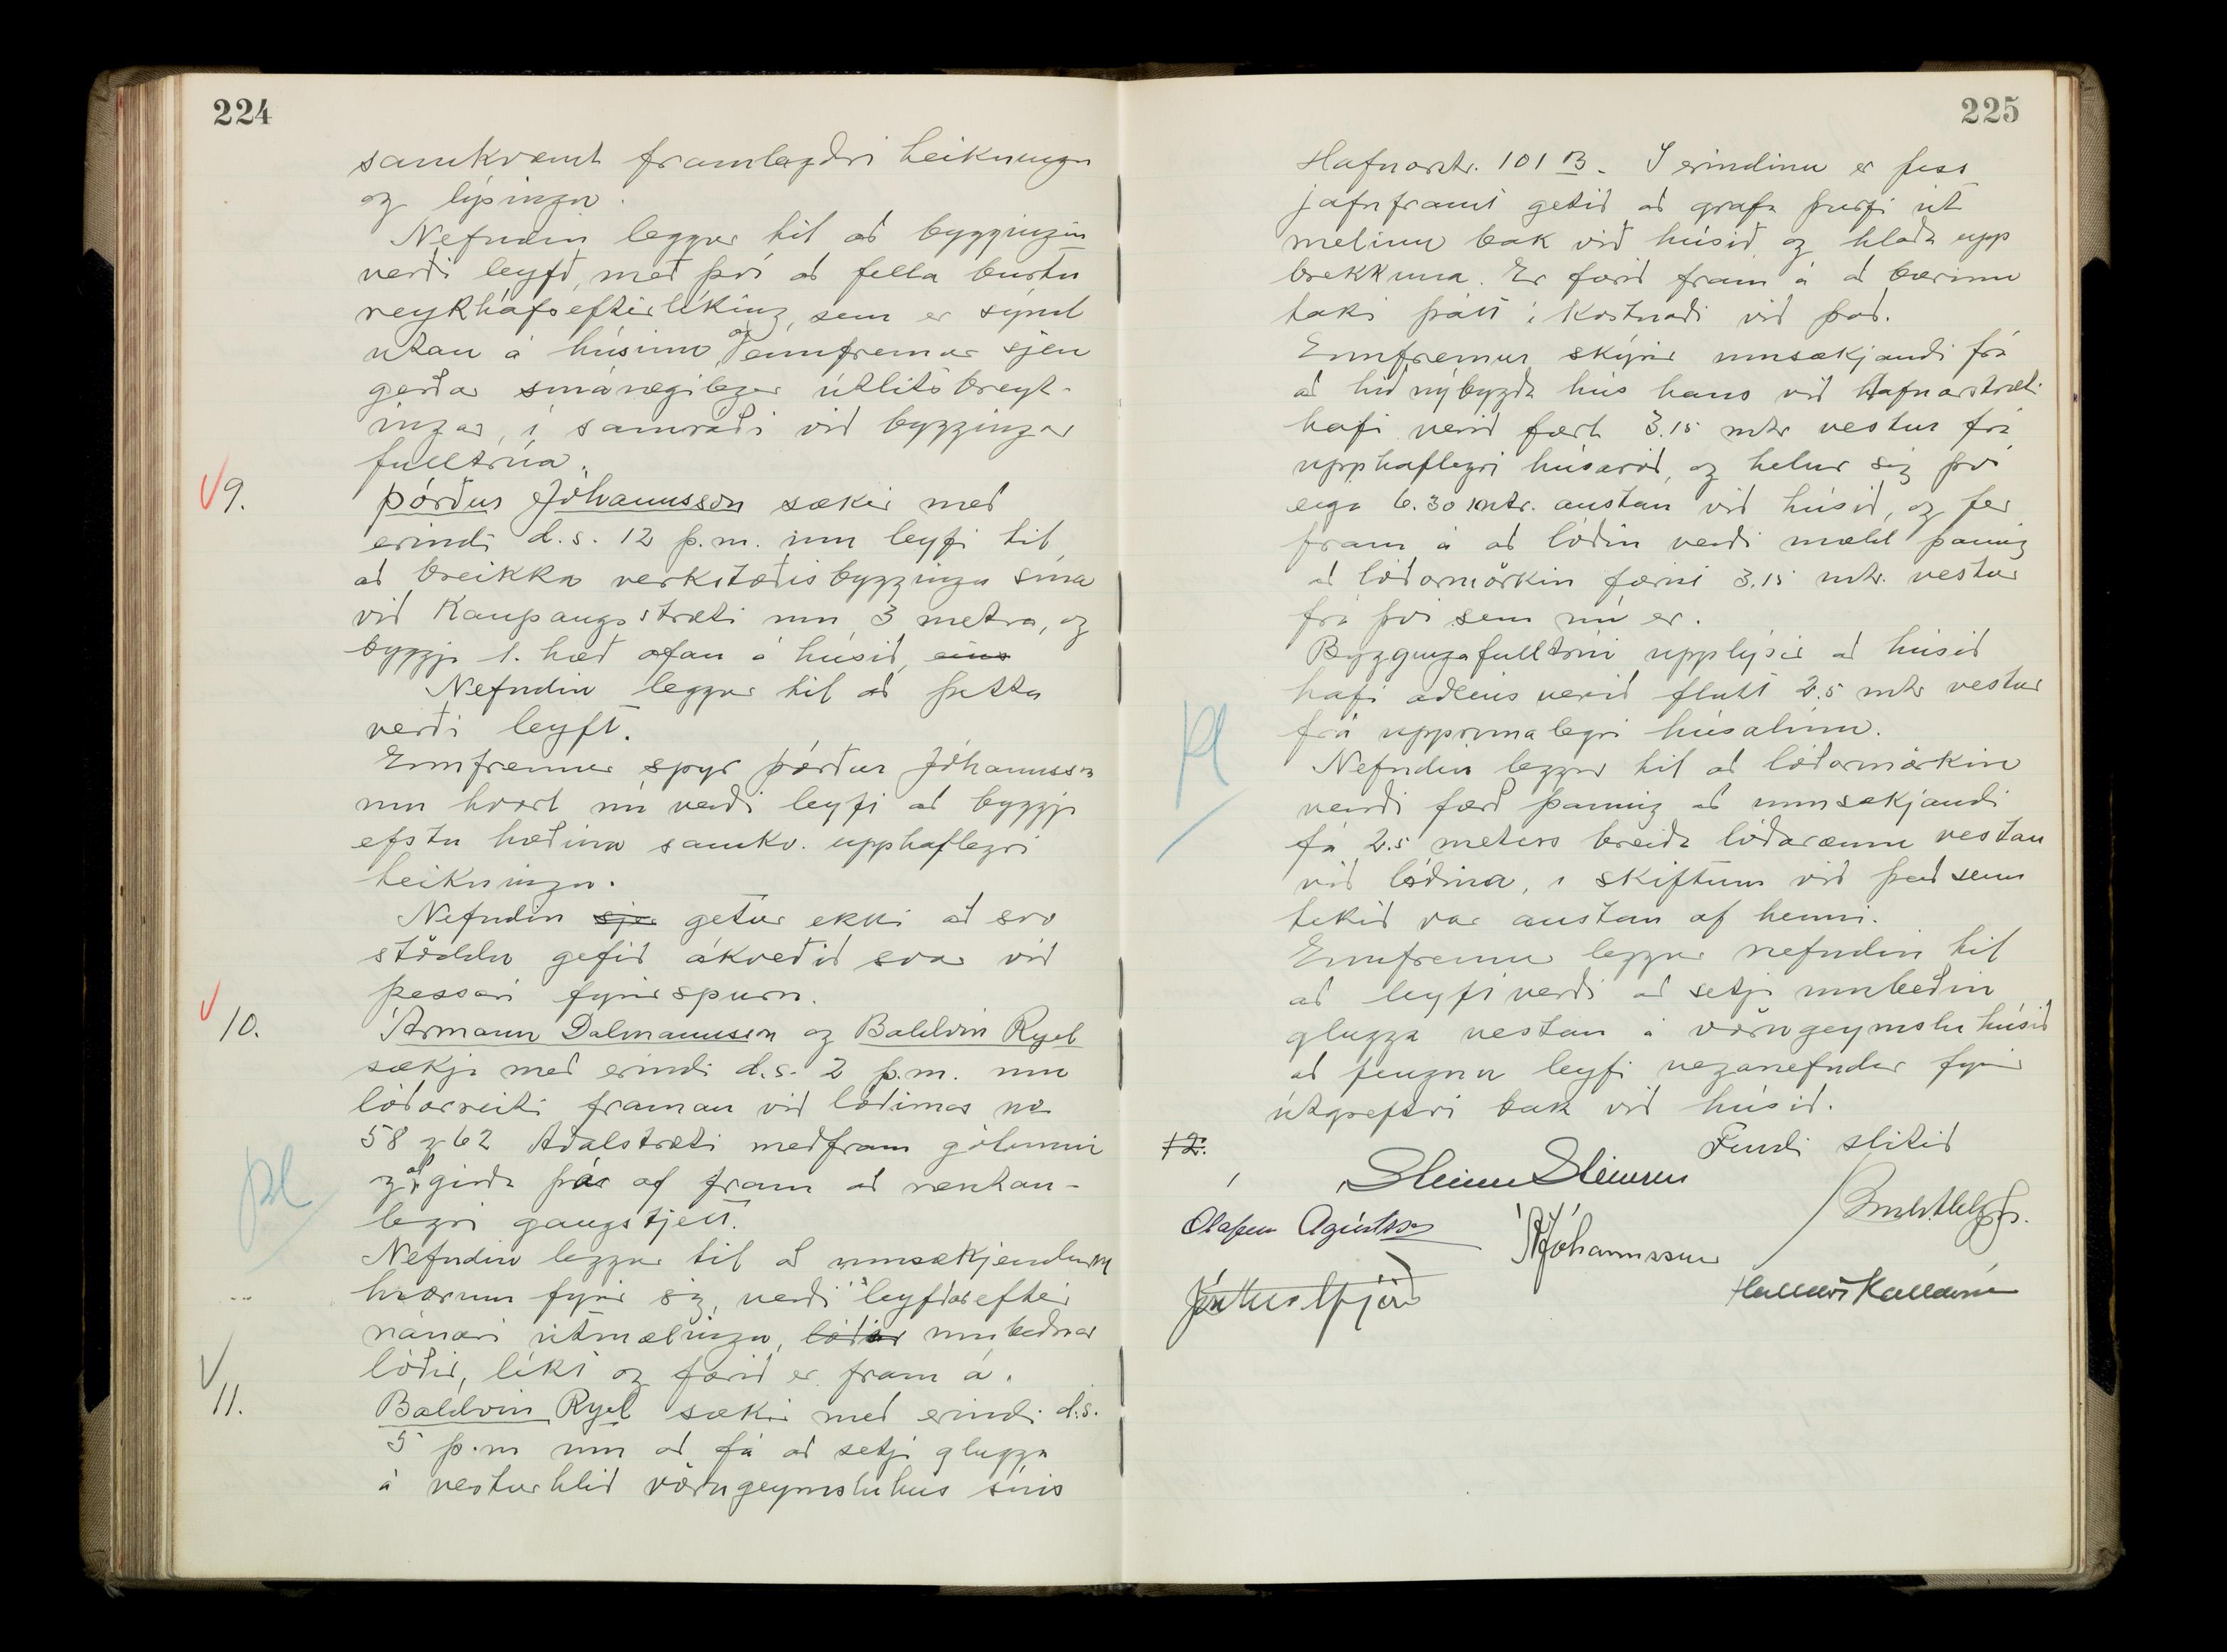 224
samkvæmt framlagðri teikningu
og lýsingu.
Nefndin leggur til að byggingin
verði leyfð, með því að fella burtu
reykháfseftirlíking, sem er sýnd
utan á húsinu, og ennfremur sjeu
gerðar smávægilegar útlitsbreyt-
ingar, í samráði við byggingar
fulltrúa.
9. Þórður Jóhannsson sækir með
erindi d.s. 12 þ.m. um leyfi til,
að breikka verkstæðisbyggingu sína
við Kaupangsstræti um 3 metra, og
byggja 1. hæð ofan á húsið, eins
Nefndin leggur til að þetta
verði leyft.
Ennfremur spyr Þórður Jóhannsson
um hvort nú verði leyfi að byggja
efstu hæðina samkv. upphaflegri
teikningu.
Nefndin sjer getur ekki að svo
stöddu gefið ákveðið svar við
þessari fyrirspurn.
10. Ármann Dalmannsson og Baldvin Ryel
sækja með erindi d.s. 2 þ.m. um
lóðarreiti framan við lóðirnar no
58 og 62 Aðalstræti meðfram götunni
og að girða þár af fram að væntan-
legri gangstjett.
Nefndin leggur til að umsækjendum
hvorum fyrir sig, verði leyfðar eftir
nánari útmælingu, lóðar umbeðnar
lóðir, líkt og farið er fram á.
11. Baldvin Ryel sækir með erindi d.s.
5 þ.m um að fá að setja glugga
á vesturhlið vörugeymsluhús síns
225
Hafnarstr. 101 B. Í erindinu er þess
jafnframt getið að grafa þurfi út
melinn bak við húsið og hlaða upp
brekkuna. Er farið fram á að bærinn
taki þátt í kostnaði við það.
Ennfremur skýrir umsækjandi frá
að hið nýbygða hús hans við Hafnarstræti
hafi verið fært 3.15 mtr vestur frá
upphaflegri húsaröð, og telur sig því
eiga 6.30 mtr. austan við húsið, og fer
fram á að lóðin verði mæld þannig
að lóðarmörkin færist 3.15 mtr. vestur
frá því sem nú er.
Byggingafulltrúi upplýsir að húsið
hafi aðeins verið flutt 2.5 mtr vestur
frá upprunalegri húsalínu.
Nefndin leggur til að lóðarmörkin
verði færð þannig að umsækjandi
fá 2.5 meters breiða lóðarræmu vestan
við lóðina, í skiftum við það sem
tekið var austan af henni.
Ennfremur leggur nefndin til
að leyft verði að setja umbeðin
glugga vestan á vörugeymsluhúsið
að fengnu leyfi veganefndar fyrir
útgreftri bak við húsið.
12. Fundi slitið
Steinn Steinsen
Ólafur Ágústsson
Jóhannsson